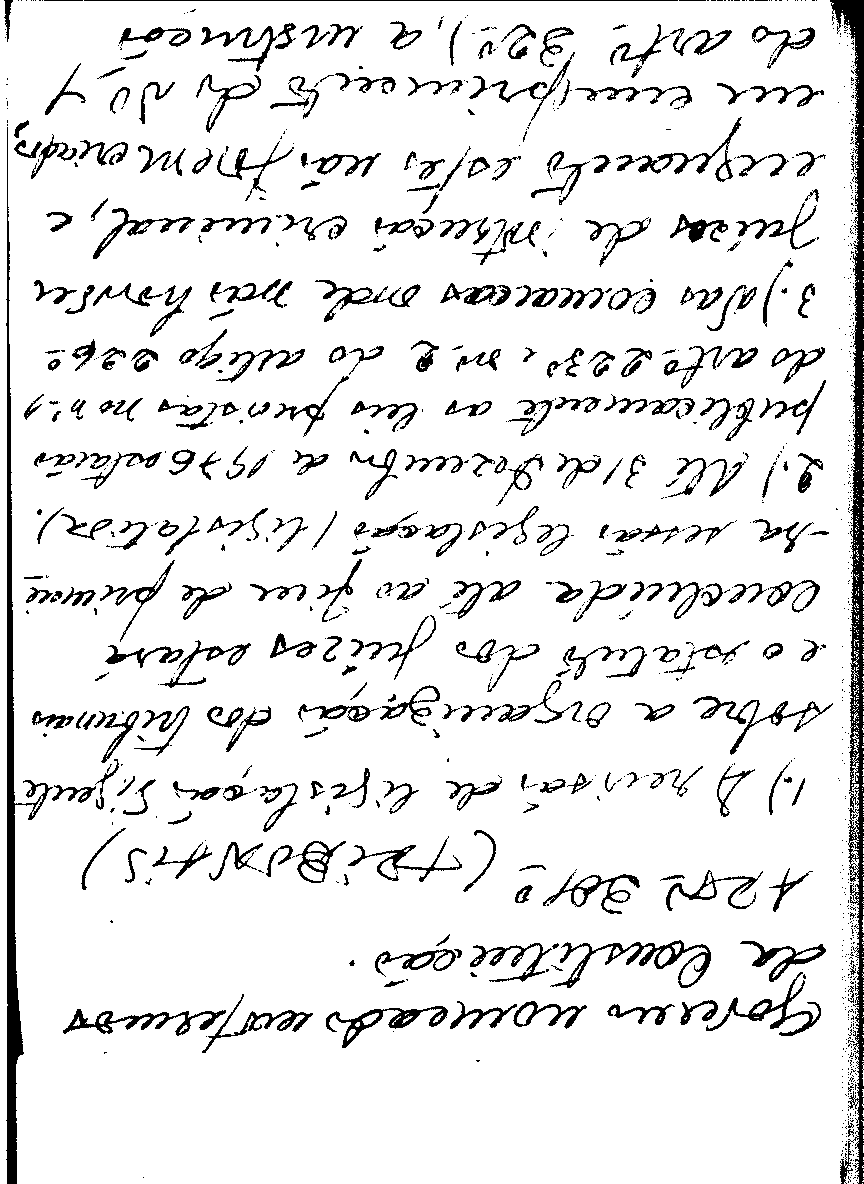 Governo nomeado nos termos
da Constituição.
ARTº 301º (TRIBUNAIS)
1.) A revisão de legislação vigente
sobre a organização dos tribunais
e o estatuto dos juízes estará
concluída até ao fim de primei
-ra sessão legislação (legislativa).
2.) Até 31 de Dezembro de 1976 estarão
publicamente as leis previstas no nº 1
do artº 223º, e nº 2 do artigo 226º
3.) Nas comarcas onde não houver
juízos de instrução criminal, e
enquanto estes não forem criados,
em cumprimento do nº 4
do artº 32º), a instrução